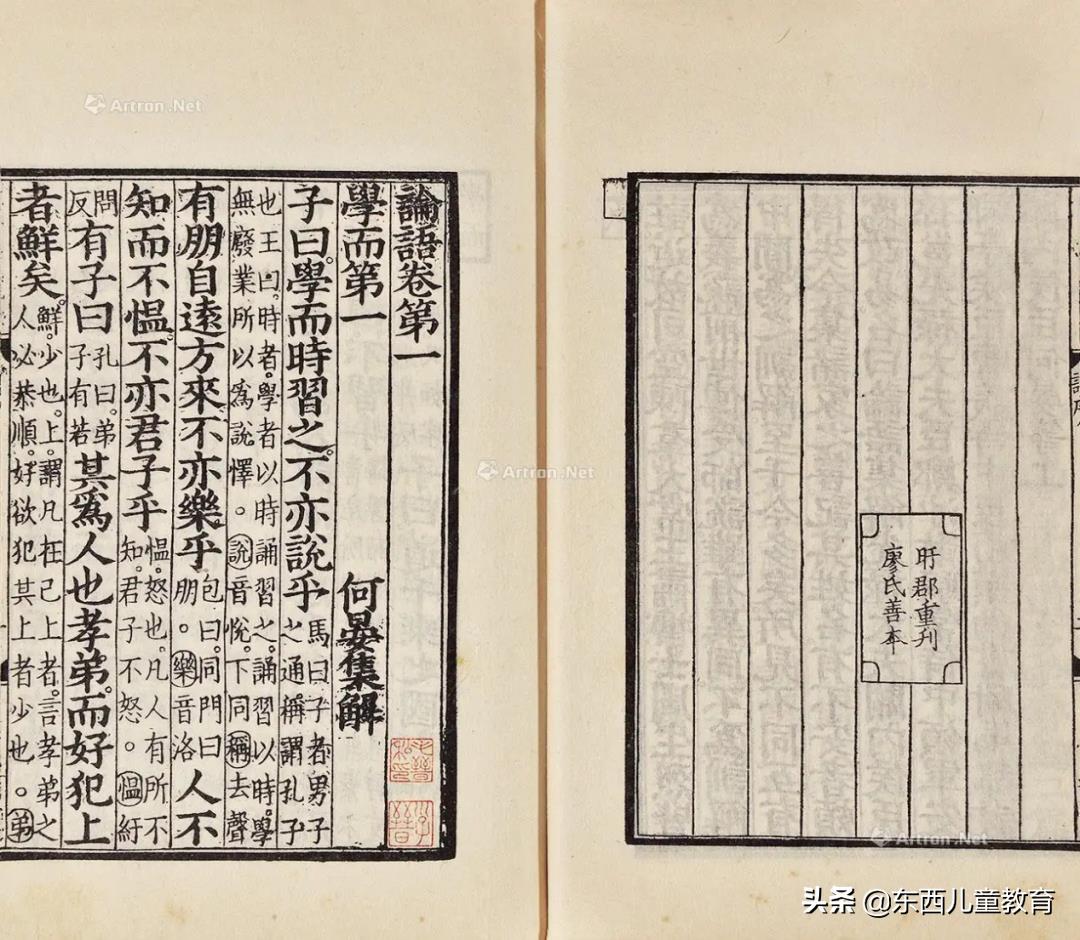 盱郡重刊
廖氏善本
論語卷第一
毛晉私印
子晉
學而第一 何晏集解
子曰。學而時習之。不亦說乎 馬曰子者男子之通稱謂孔子
也王曰。時者。學者以時誦習之。誦習以時。學無廢業所以爲說懌。說音悅。下同稱去聲
有朋自遠方來不亦樂乎 包曰。同門曰朋。樂音洛 人不
知而不慍。不亦君子乎 慍。怒也。凡人有所不知。君子不怒。慍紆
問反 有子曰 孔曰。弟子有若 其爲人也孝弟。而好犯上
者鮮矣。鮮。少也。上。謂凡在己上者。言孝弟之人必恭順。好欲犯其上者少也。弟
Artron.Net
Artron.Net
Artron.Net
头条 @东西儿童教育